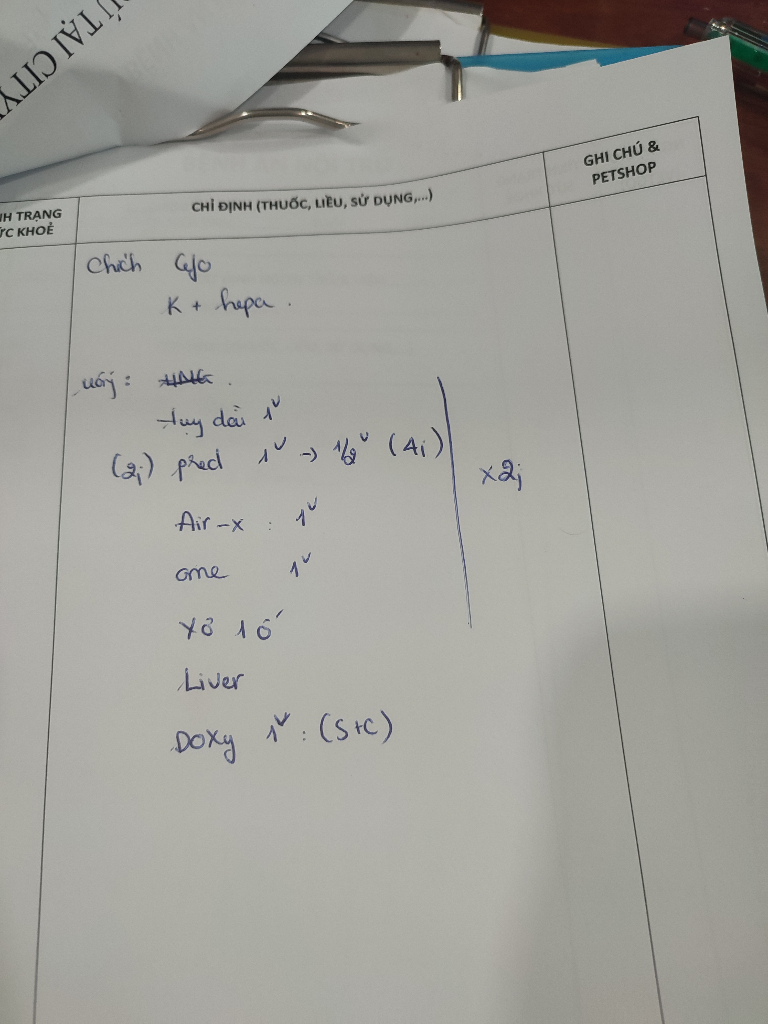 ÚTẠI CITY
NH TRẠNG
ỨC KHOẺ
CHỈ ĐỊNH (THUỐC, LIỀU, SỬ DỤNG,...)
GHI CHÚ &
PETSHOP
Chích
K + hepa.
uống:
tuỵ dài 1v
(2j) pred 1v → 1/2v (4j)
x2j
Air-x : 1v
ome 1v
xổ 1 ố
Liver
DOXy 1v : (S+C)